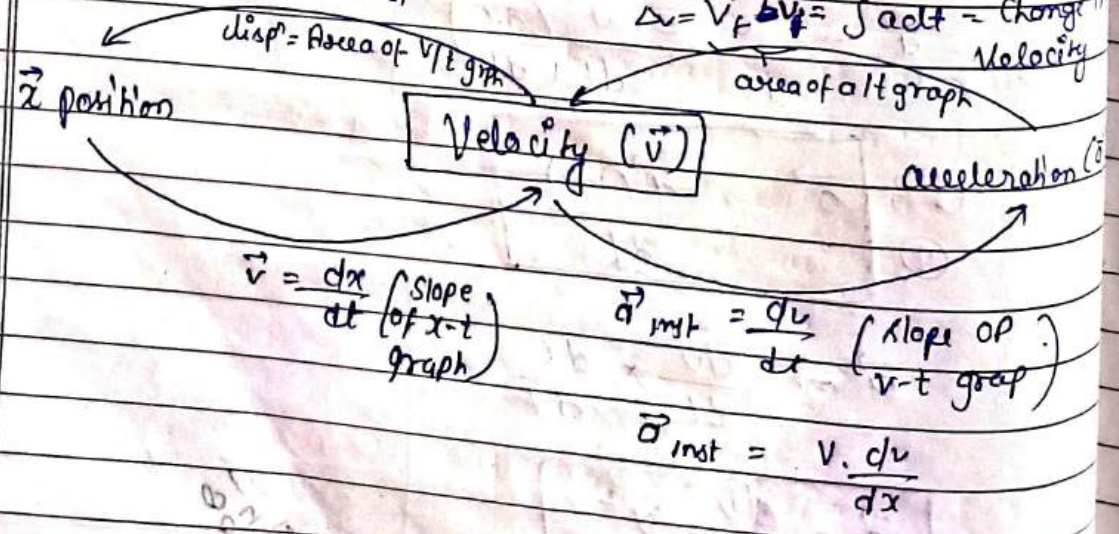 Δv = Vf = ∫ adt = Change
Velocity
dispⁿ = Area of V/t grph
area of a/t graph
x⃗ position
Velocity (v⃗)
acceleration (a⃗
v⃗ = dx/dt (Slope of x-t graph)
a⃗ inst = dv/dt (slope of v-t grap)
a⃗ inst = v. dv/dx